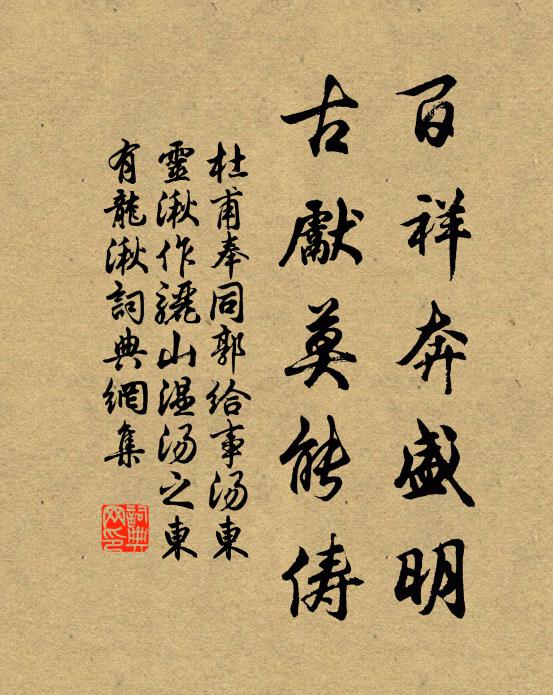 百祥奔盛明
古獻莫能儔
杜甫奉同郭給事湯東
靈湫作驪山溫湯之東
有龍湫詞典網集
詞典
网印